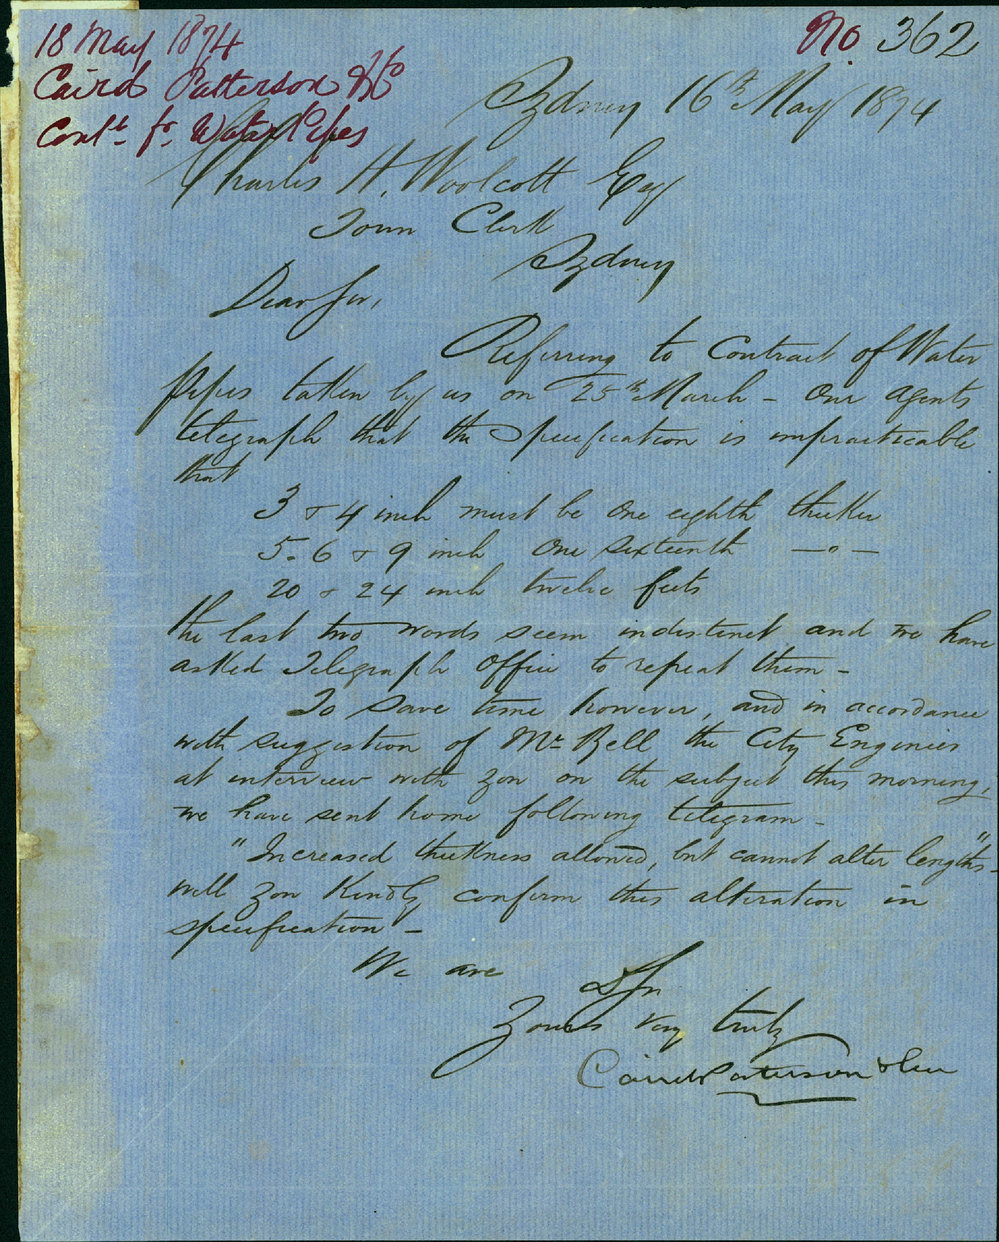 18 May 1874
Caird Patterson & Co
Cont. for Water Pipes
No. 362
Sydney 16th May 1874
Charles H. Woolcott Esq
Town Clerk
Sydney
Dear Sir,
Referring to Contract of Water
pipes taken by us on 25th March – Our Agents
telegraph that the Specification is impracticable
that
3 & 4 inch must be one eighth thicker
5. 6 & 9 inch One Sixteenth —o—
20 & 24 inch twelve feets
the last two words seem indistinct and we have
asked Telegraph Office to repeat them –
To save time however, and in accordance
with suggestion of Mr Bell the City Engineer
at interview with you on the subject this morning,
we have sent home following telegram –
"Increased thickness allowed, but cannot alter lengths" –
will you kindly confirm this alteration in
specification –
We are Sir
Yours very truly
Caird Patterson & Co